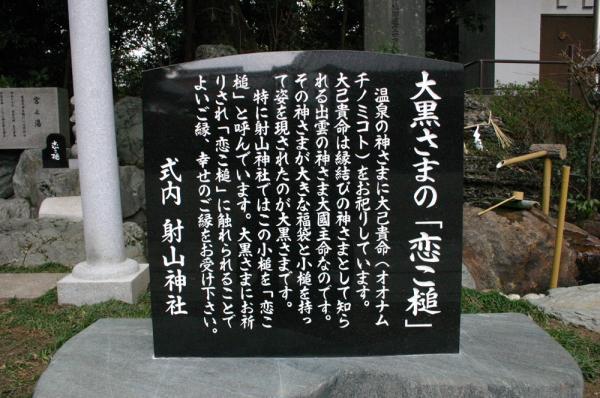 大黒さまの「恋こ槌」
温泉の神さまに大己貴命（オオナム
チノミコト）をお祀りしています。
大己貴命は縁結びの神さまとして知ら
れる出雲の神さま大國主命なのです。
その神さまが大きな福袋と小槌を持っ
て姿を現されたのが大黒さまです。
特に射山神社ではこの小槌を「恋こ
槌」と呼んでいます。大黒さまにお祈
りされ「恋こ槌」に触れられることで
よいご縁、幸せのご縁をお受け下さい。
式内 射山神社
宮の湯
恋こ槌